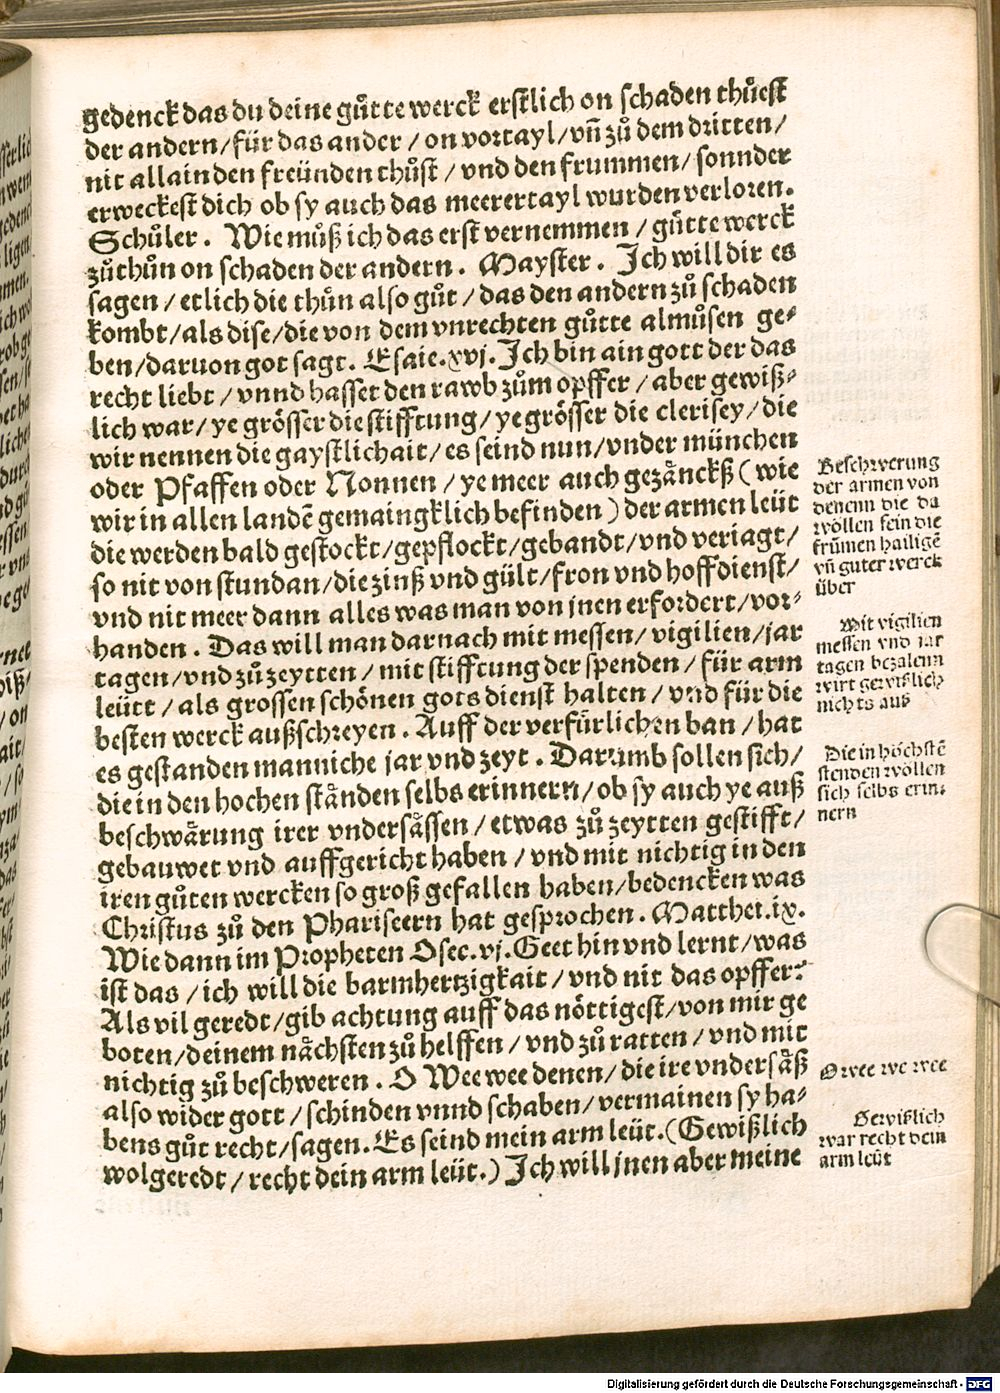 gedenck das du deine gůtte werck erstlich on schaden thůest
der andern/für das ander/on vortayl/vñ zů dem dritten/
nit allain den freünden thůst/vnd den frummen/sonnder
erweckest dich ob sy auch das meerertayl wurden verloren.
Schůler. Wie můß ich das erst vernemmen/gůtte werck
zůthůn on schaden der andern. Mayster. Ich will dir es
sagen/etlich die thůn also gůt/das den andern zů schaden
kombt/als dise/die von dem vnrechten gůtte almůsen ge⸗
ben/daruon got sagt. Esaie.xvj. Ich bin ain gott der das
recht liebt/vnnd hasset den rawb zům opffer/aber gewiß⸗
lich war/ye grösser die stifftung/ye grösser die clerisey/die
wir nennen die gaystlichait/es seind nun/vnder münchen
oder Pfaffen oder Nonnen/ye meer auch gezänckß (wie
wir in allen landẽ gemaingklich befinden) der armen leüt
die werden bald gestockt/gepflockt/gebandt/vnd veriagt/
so nit von stundan/die zinß vnd gült/fron vnd hoffdienst/
vnd nit meer dann alles was man von jnen erfordert/vor⸗
handen. Das will man darnach mit messen/vigilien/jar
tagen/vnd zů zeytten/mit stifftung der spenden/für arm
leütt/als grossen schönen gots dienst halten/vnd für die
besten werck außschreyen. Auff der verfürlichen ban/hat
es gestanden manniche jar vnd zeyt. Darumb sollen sich/
die in den hochen ständen selbs erinnern/ob sy auch ye auß
beschwärung irer vndersässen/etwas zů zeytten gestifft/
gebauwet vnd auffgericht haben/vnd mit nichtig in den
iren gůten wercken so groß gefallen haben/bedencken was
Christus zů den Phariseern hat gesprochen. Matthei.ix.
Wie dann im Propheten Osee.vj. Geet hin vnd lernt/was
ist das/ich will die barmhertzigkait/vnd nit das opffer?
Als vil geredt/gib achtung auff das nöttigest/von mir ge
boten/deinem nächsten zů helffen/vnd zů ratten/vnd mit
nichtig zů beschweren. O Wee wee denen/die ire vndersäß
also wider gott/schinden vnnd schaben/vermainen sy ha⸗
bens gůt recht/sagen. Es seind mein arm leüt. (Gewißlich
wolgeredt/recht dein arm leüt.) Ich will jnen aber meine
Beschwerung
der armen von
denenn die da
wöllen sein die
frümen hailigẽ
vñ guter werck
über
Mit vigilien
messen vnd jar
tagen bezalenn
wirt gewißlich
nichts auß
Die in höchstẽ
stenden wöllen
sich selbs erin⸗
nern
O wee we wee
Gewißlich
war recht dein
arm leüt
Digitalisierung gefördert durch die Deutsche Forschungsgemeinschaft - DFG